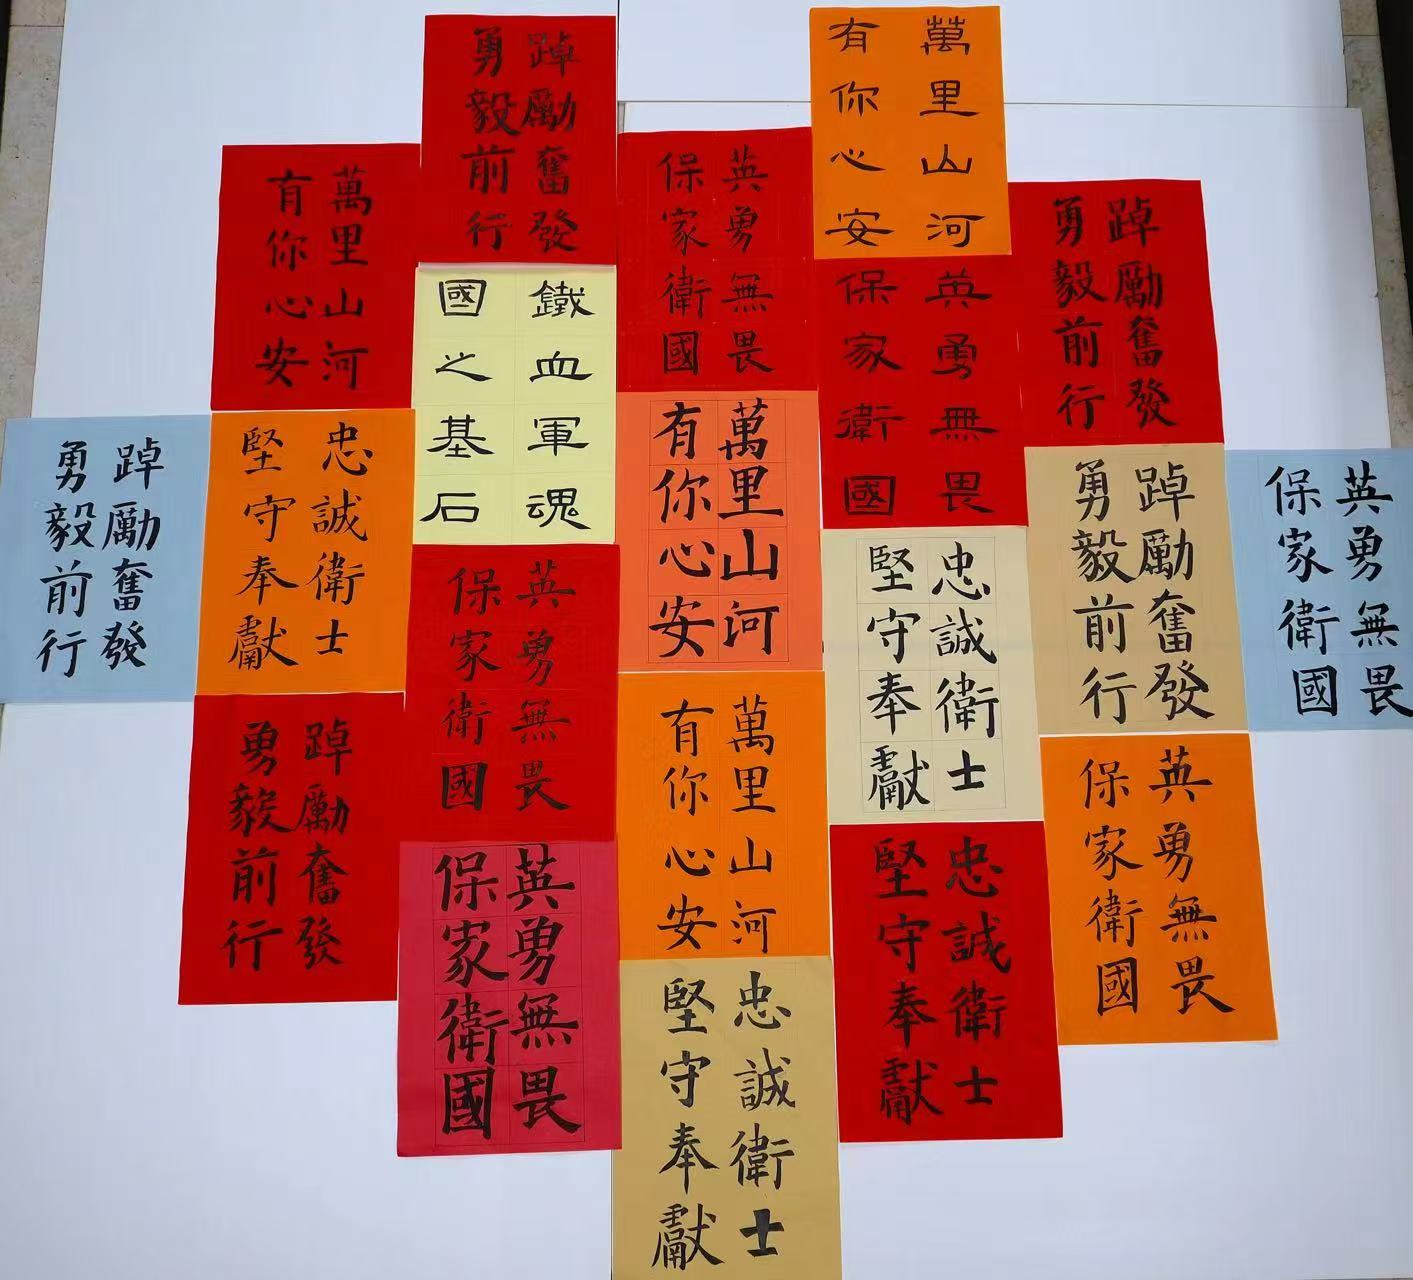 踔勵奮發
勇毅前行
萬里山河
有你心安
英勇無畏
保家衛國
萬里山河
有你心安
踔勵奮發
勇毅前行
鐵血軍魂
國之基石
英勇無畏
保家衛國
萬里山河
有你心安
踔勵奮發
勇毅前行
忠誠衛士
堅守奉獻
踔勵奮發
勇毅前行
英勇無畏
保家衛國
英勇無畏
保家衛國
忠誠衛士
堅守奉獻
踔勵奮發
勇毅前行
萬里山河
有你心安
英勇無畏
保家衛國
英勇無畏
保家衛國
忠誠衛士
堅守奉獻
忠誠衛士
堅守奉獻